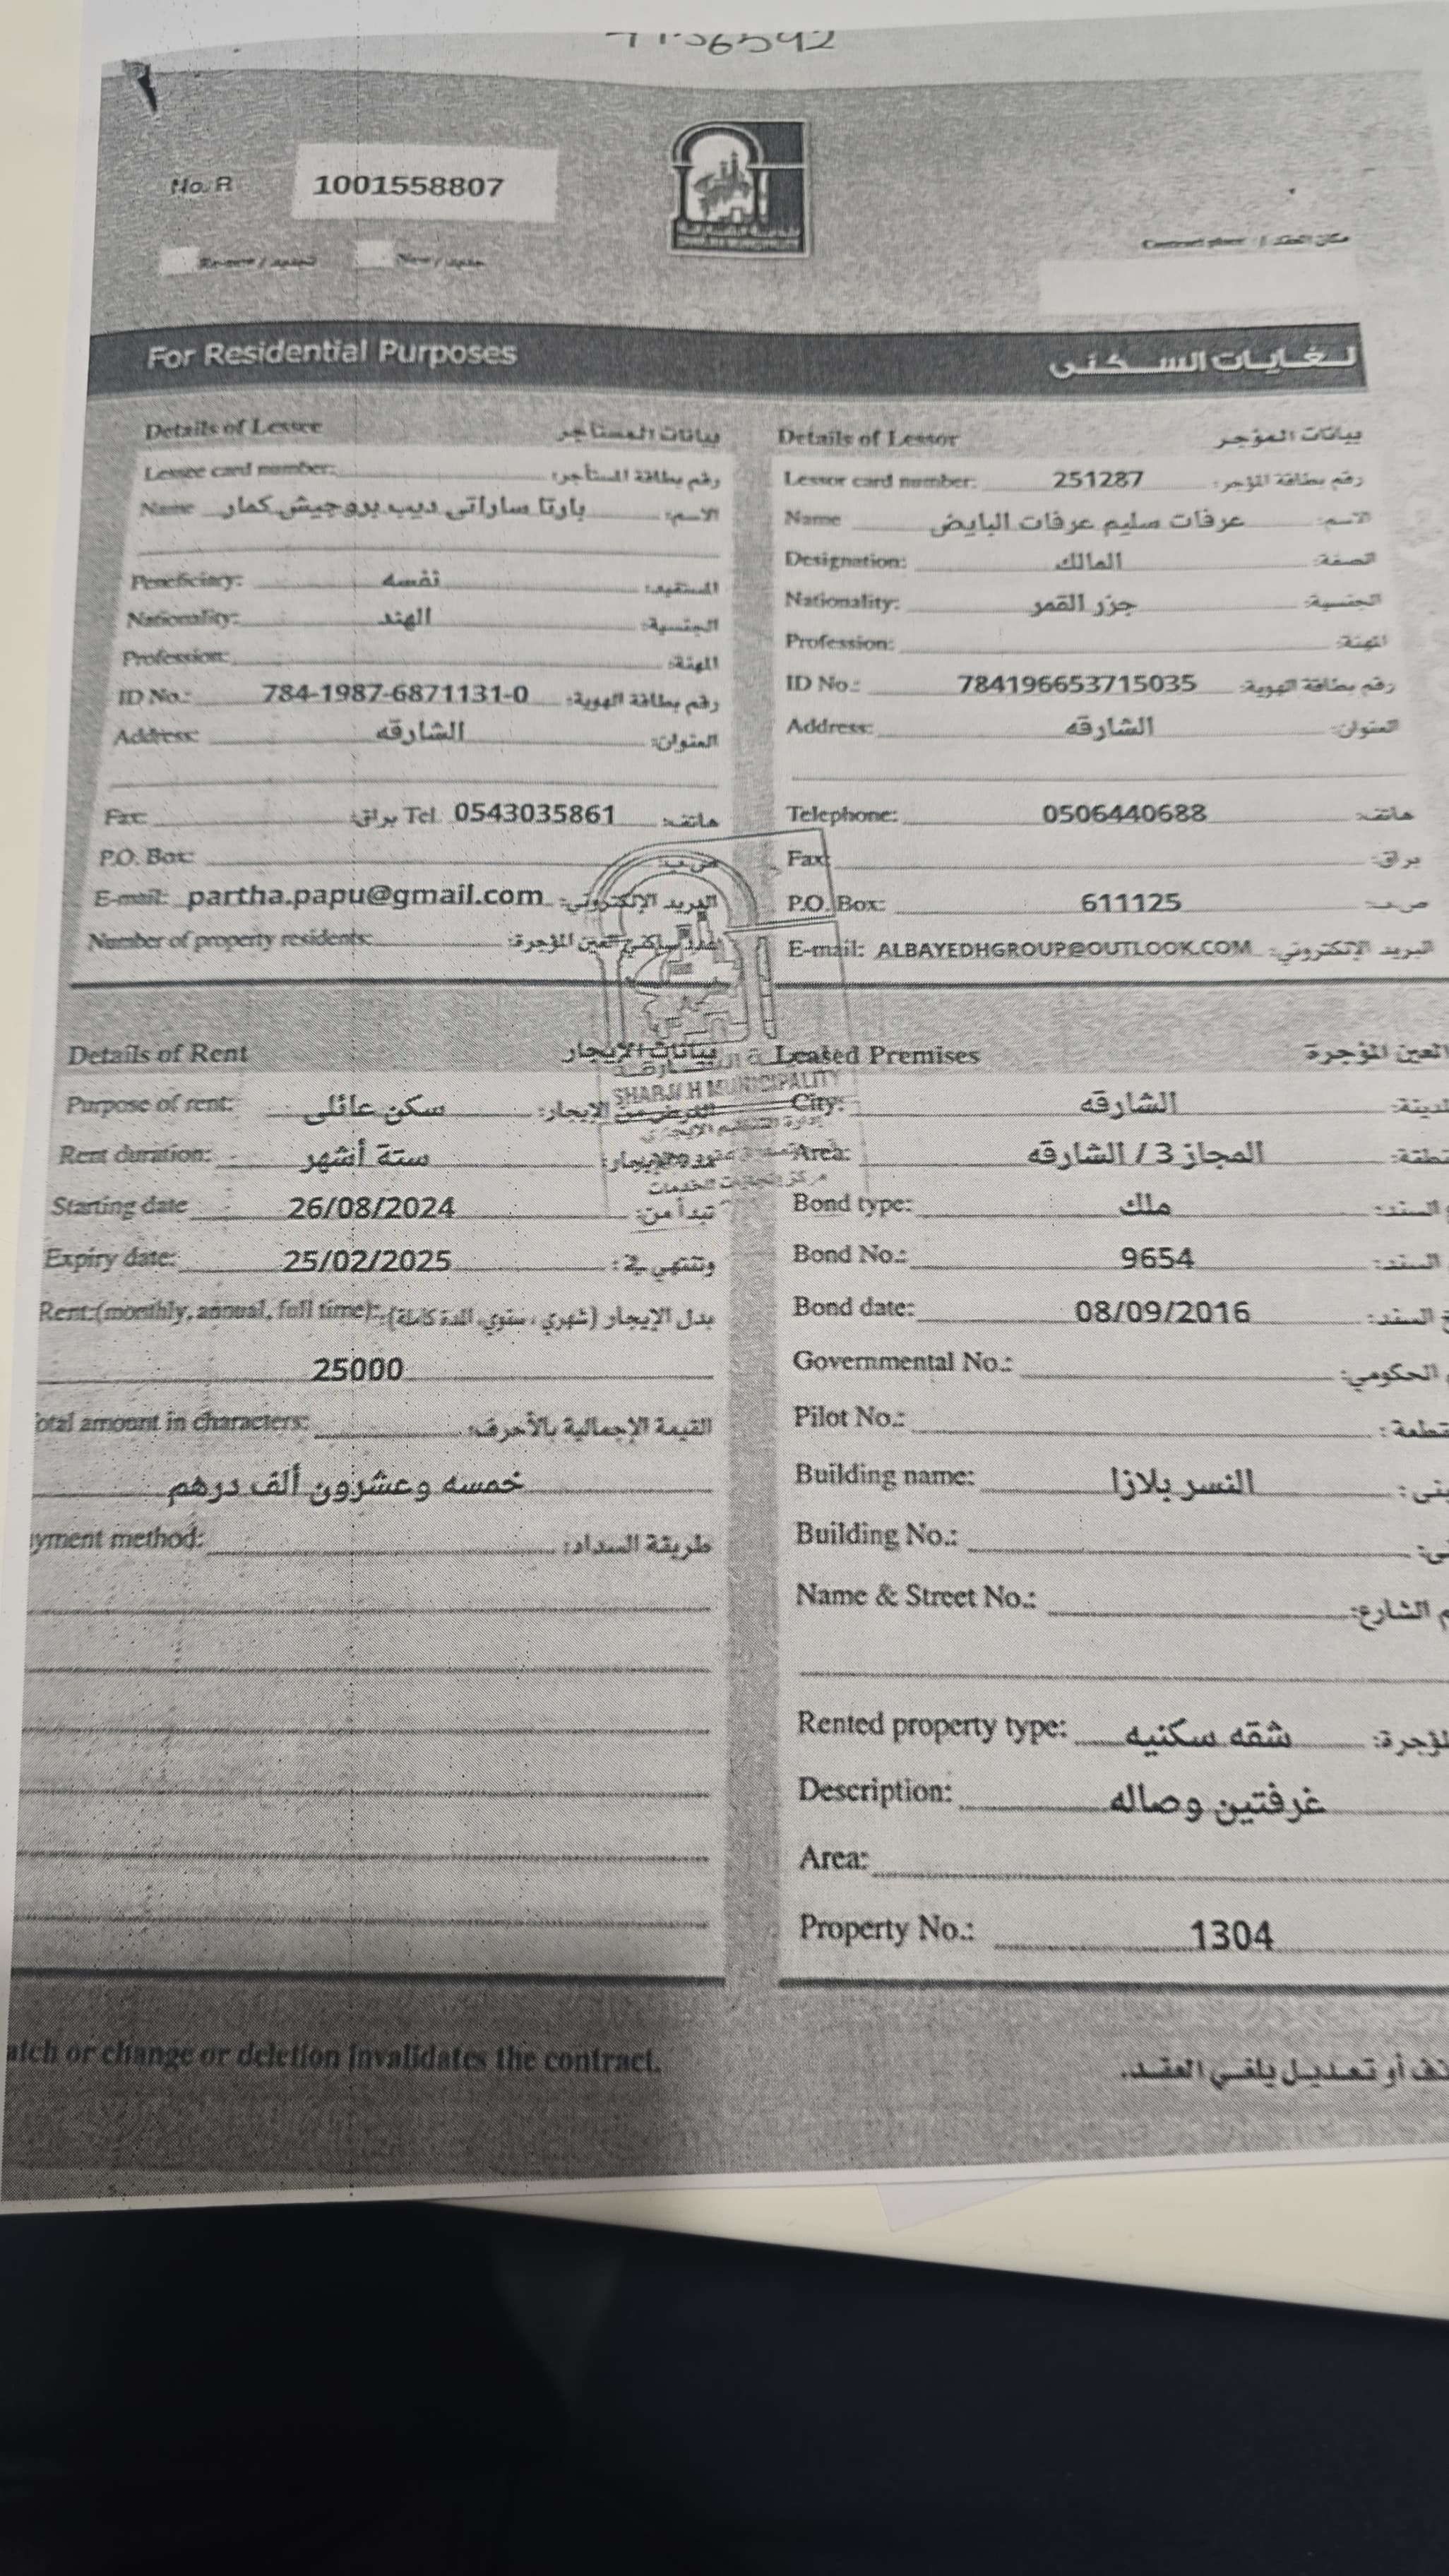 No. R 1001558807
Renew / تجديد New / جديد
Contract place / مكان العقد
For Residential Purposes لـغـايـات الســكـنـى
Details of Lessee بيانات المستأجر
Lessee card number: رقم بطاقة المستأجر:
Name بارتا ساراتى ديب بروجيش كمار الاسم:
Beneficiary: نفسه المستفيد:
Nationality: الهند الجنسية:
Profession: المهنة:
ID No.: 784-1987-6871131-0 رقم بطاقة الهوية:
Address: الشارقه العنوان:
Fax: براق: Tel 0543035861 هاتف:
P.O. Box: ص.ب:
E-mail: partha.papu@gmail.com البريد الإلكتروني:
Number of property residents: عدد ساكني العين المؤجرة:
Details of Lessor بيانات المؤجر
Lessor card number: 251287 رقم بطاقة المؤجر:
Name عرفات سليم عرفات البايض الاسم:
Designation: المالك الصفة:
Nationality: جزر القمر الجنسية:
Profession: المهنة:
ID No.: 784196653715035 رقم بطاقة الهوية:
Address: الشارقه العنوان:
Telephone: 0506440688 هاتف:
Fax: براق:
P.O. Box: 611125 ص.ب:
E-mail: ALBAYEDHGROUP@OUTLOOK.COM البريد الإلكتروني:
SHARJAH MUNICIPALITY
Details of Rent بيانات الإيجار
Purpose of rent: سكن عائلى الغرض من الإيجار:
Rent duration: ستة أشهر
Starting date 26/08/2024 تبدأ من:
Expiry date: 25/02/2025 وتنتهي في:
Rent:(monthly, annual, full time): بدل الإيجار (شهري، سنوي، المدة كاملة):
25000
otal amount in characters: القيمة الإجمالية بالأحرف:
خمسه وعشرون ألف درهم
yment method: طريقة السداد:
Leased Premises العين المؤجرة
City: الشارقه
Area: المجاز 3 / الشارقه
Bond type: ملك السند:
Bond No.: 9654 السند:
Bond date: 08/09/2016 السند:
Governmental No.: الحكومي:
Pilot No.:
Building name: النسر بلازا
Building No.:
Name & Street No.: الشارع:
Rented property type: شقه سكنيه
Description: غرفتين وصاله
Area:
Property No.: 1304
atch or change or deletion invalidates the contract. أو تعديل يلغي العقد.